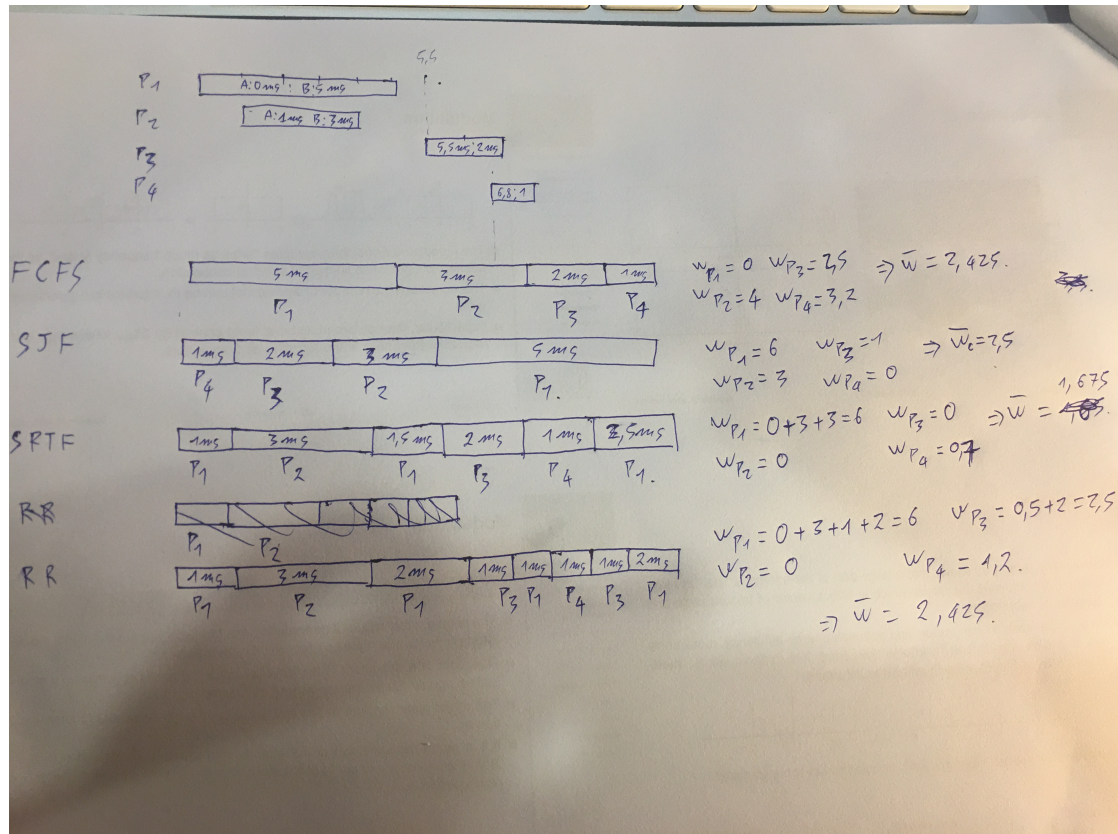 5,5
P1 A:0ms : B:5ms
P2 A:1ms B:3ms
P3 5,5ms;2ms
P4 6,8;1
FCFS 5ms 3ms 2ms 1ms
P1 P2 P3 P4
wP1=0 wP3=2,5 ⇒ w̄=2,425.
wP2=4 wP4=3,2
SJF 1ms 2ms 3ms 5ms
P4 P3 P2 P1.
wP1=6 wP3=1 ⇒ w̄=2,5
wP2=3 wP4=0
SRTF 1ms 3ms 1,5ms 2ms 1ms 2,5ms
P1 P2 P1 P3 P4 P1.
wP1=0+3+3=6 wP3=0 ⇒ w̄= 1,675
wP2=0 wP4=0,7
RR
P1 P2
RR 1ms 3ms 2ms 1ms 1ms 1ms 1ms 2ms
P1 P2 P1 P3 P1 P4 P3 P1
wP1=0+3+1+2=6 wP3=0,5+2=2,5
wP2=0 wP4=1,2.
⇒ w̄=2,425.